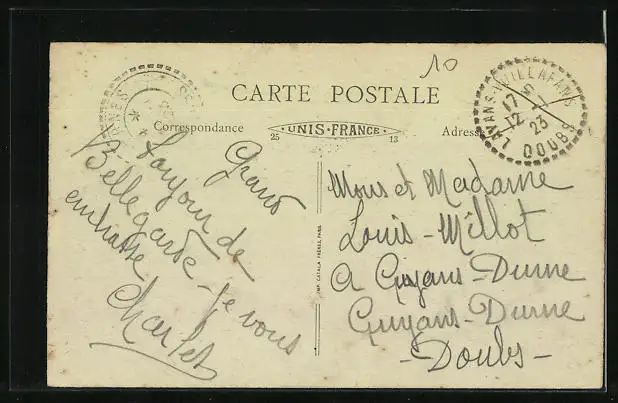 10
CARTE POSTALE
Correspondance
UNIS-FRANCE
25
13
Adresse
LAVANS-VUILLAFANS
17
12
23
DOUBS
IMP. CATALA FRÈRES, PARIS
Grand
bonjour de
Bellegarde - je vous
embrasse
Charlet
Mons et Madame
Louis - Millot
A Guyans - Durne
Guyans - Durne
- Doubs -